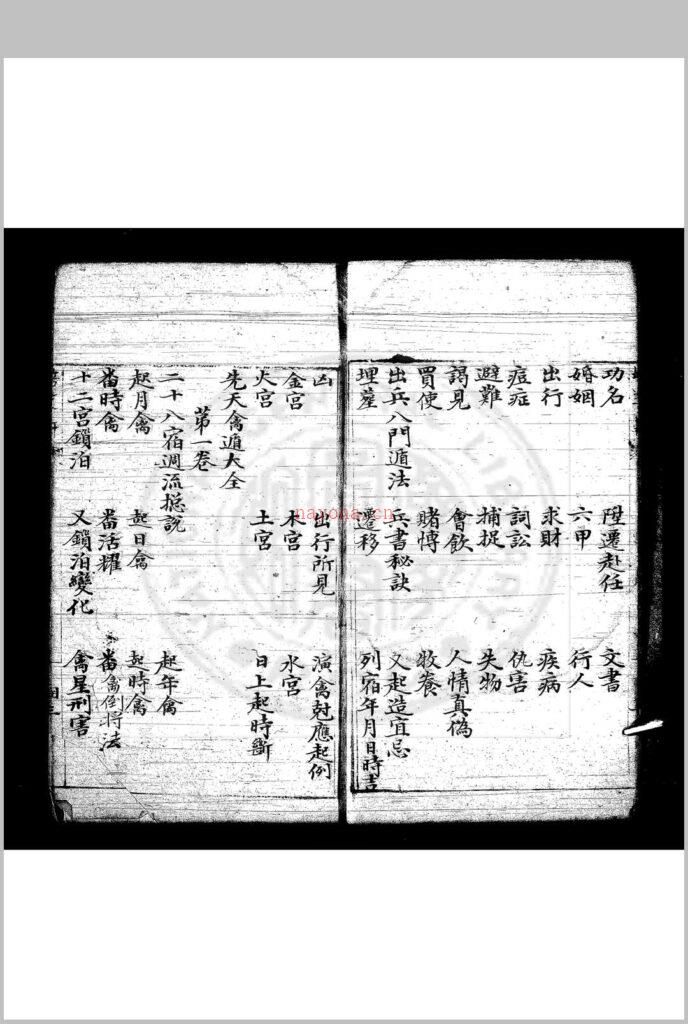 功名 陞遷赴任 文書
婚姻 六甲 行人
出行 求財 疾病
痘症 詞訟 仇害
避難 捕捉 失物
謁見 會飲 人情真偽
買使 賭愽 牧養
出兵八門遁法 兵書秘訣 又起造宜忌
埋塟 遷移 列宿年月日時吉
凶 出行所見 演禽尅應起例
金宮 木宮 水宮
火宮 土宮 日上起時斷
先天禽遁大全
第一卷
二十八宿週流捴説
起年禽
起月禽 起日禽 起時禽
畨時禽 畨活耀 畨禽倒將法
十二宮鎖泊 又鎖泊變化 禽星刑害
nayona.cn